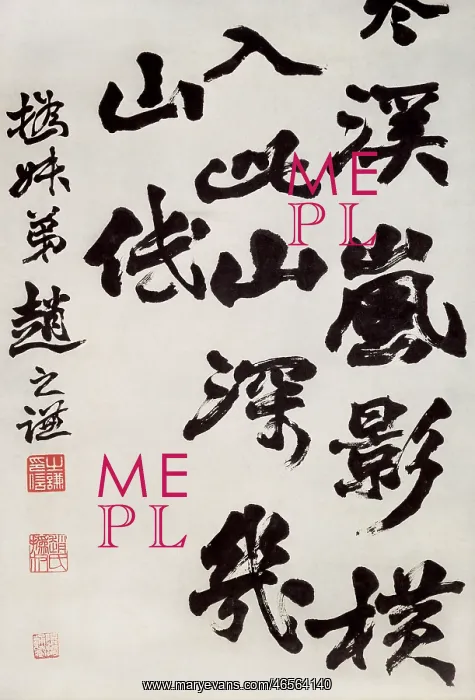 溪嵐影橫
入此山深幾
山
撝叔弟趙之謙
ME
PL
ME
PL
www.maryevans.com/46564140